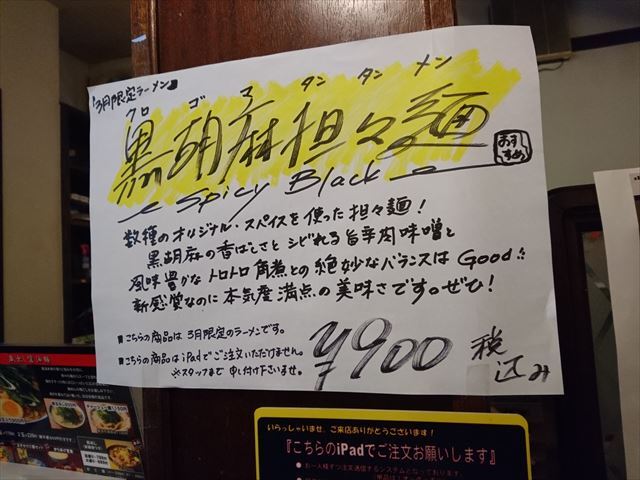 『3月限定ラーメン』
クロ ゴ マ タン タン メン
黒胡麻担々麺
おすすめ
Spicy Black
数種のオリジナル・スパイスを使った担々麺！
黒胡麻の香ばしさとシビれる旨辛肉味噌と
風味豊かなトロトロ角煮との絶妙なバランスはGood!!
新感覚なのに本気度満点の美味さです。ぜひ！
■こちらの商品は3月限定のラーメンです。
■こちらの商品はiPadでご注文いただけません。
※スタッフまで申し付け下さいませ。
¥900 税込み
いらっしゃいませ、ご来店ありがとうございます！
『こちらのiPadでご注文お願いします』